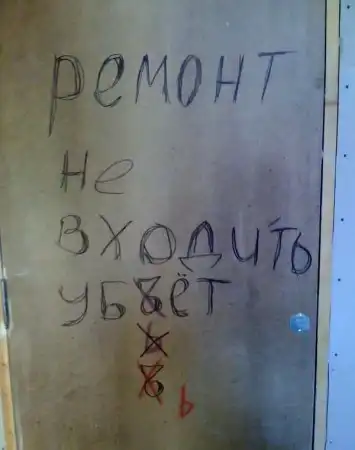 ремонт
не
входить
убъёт
ь